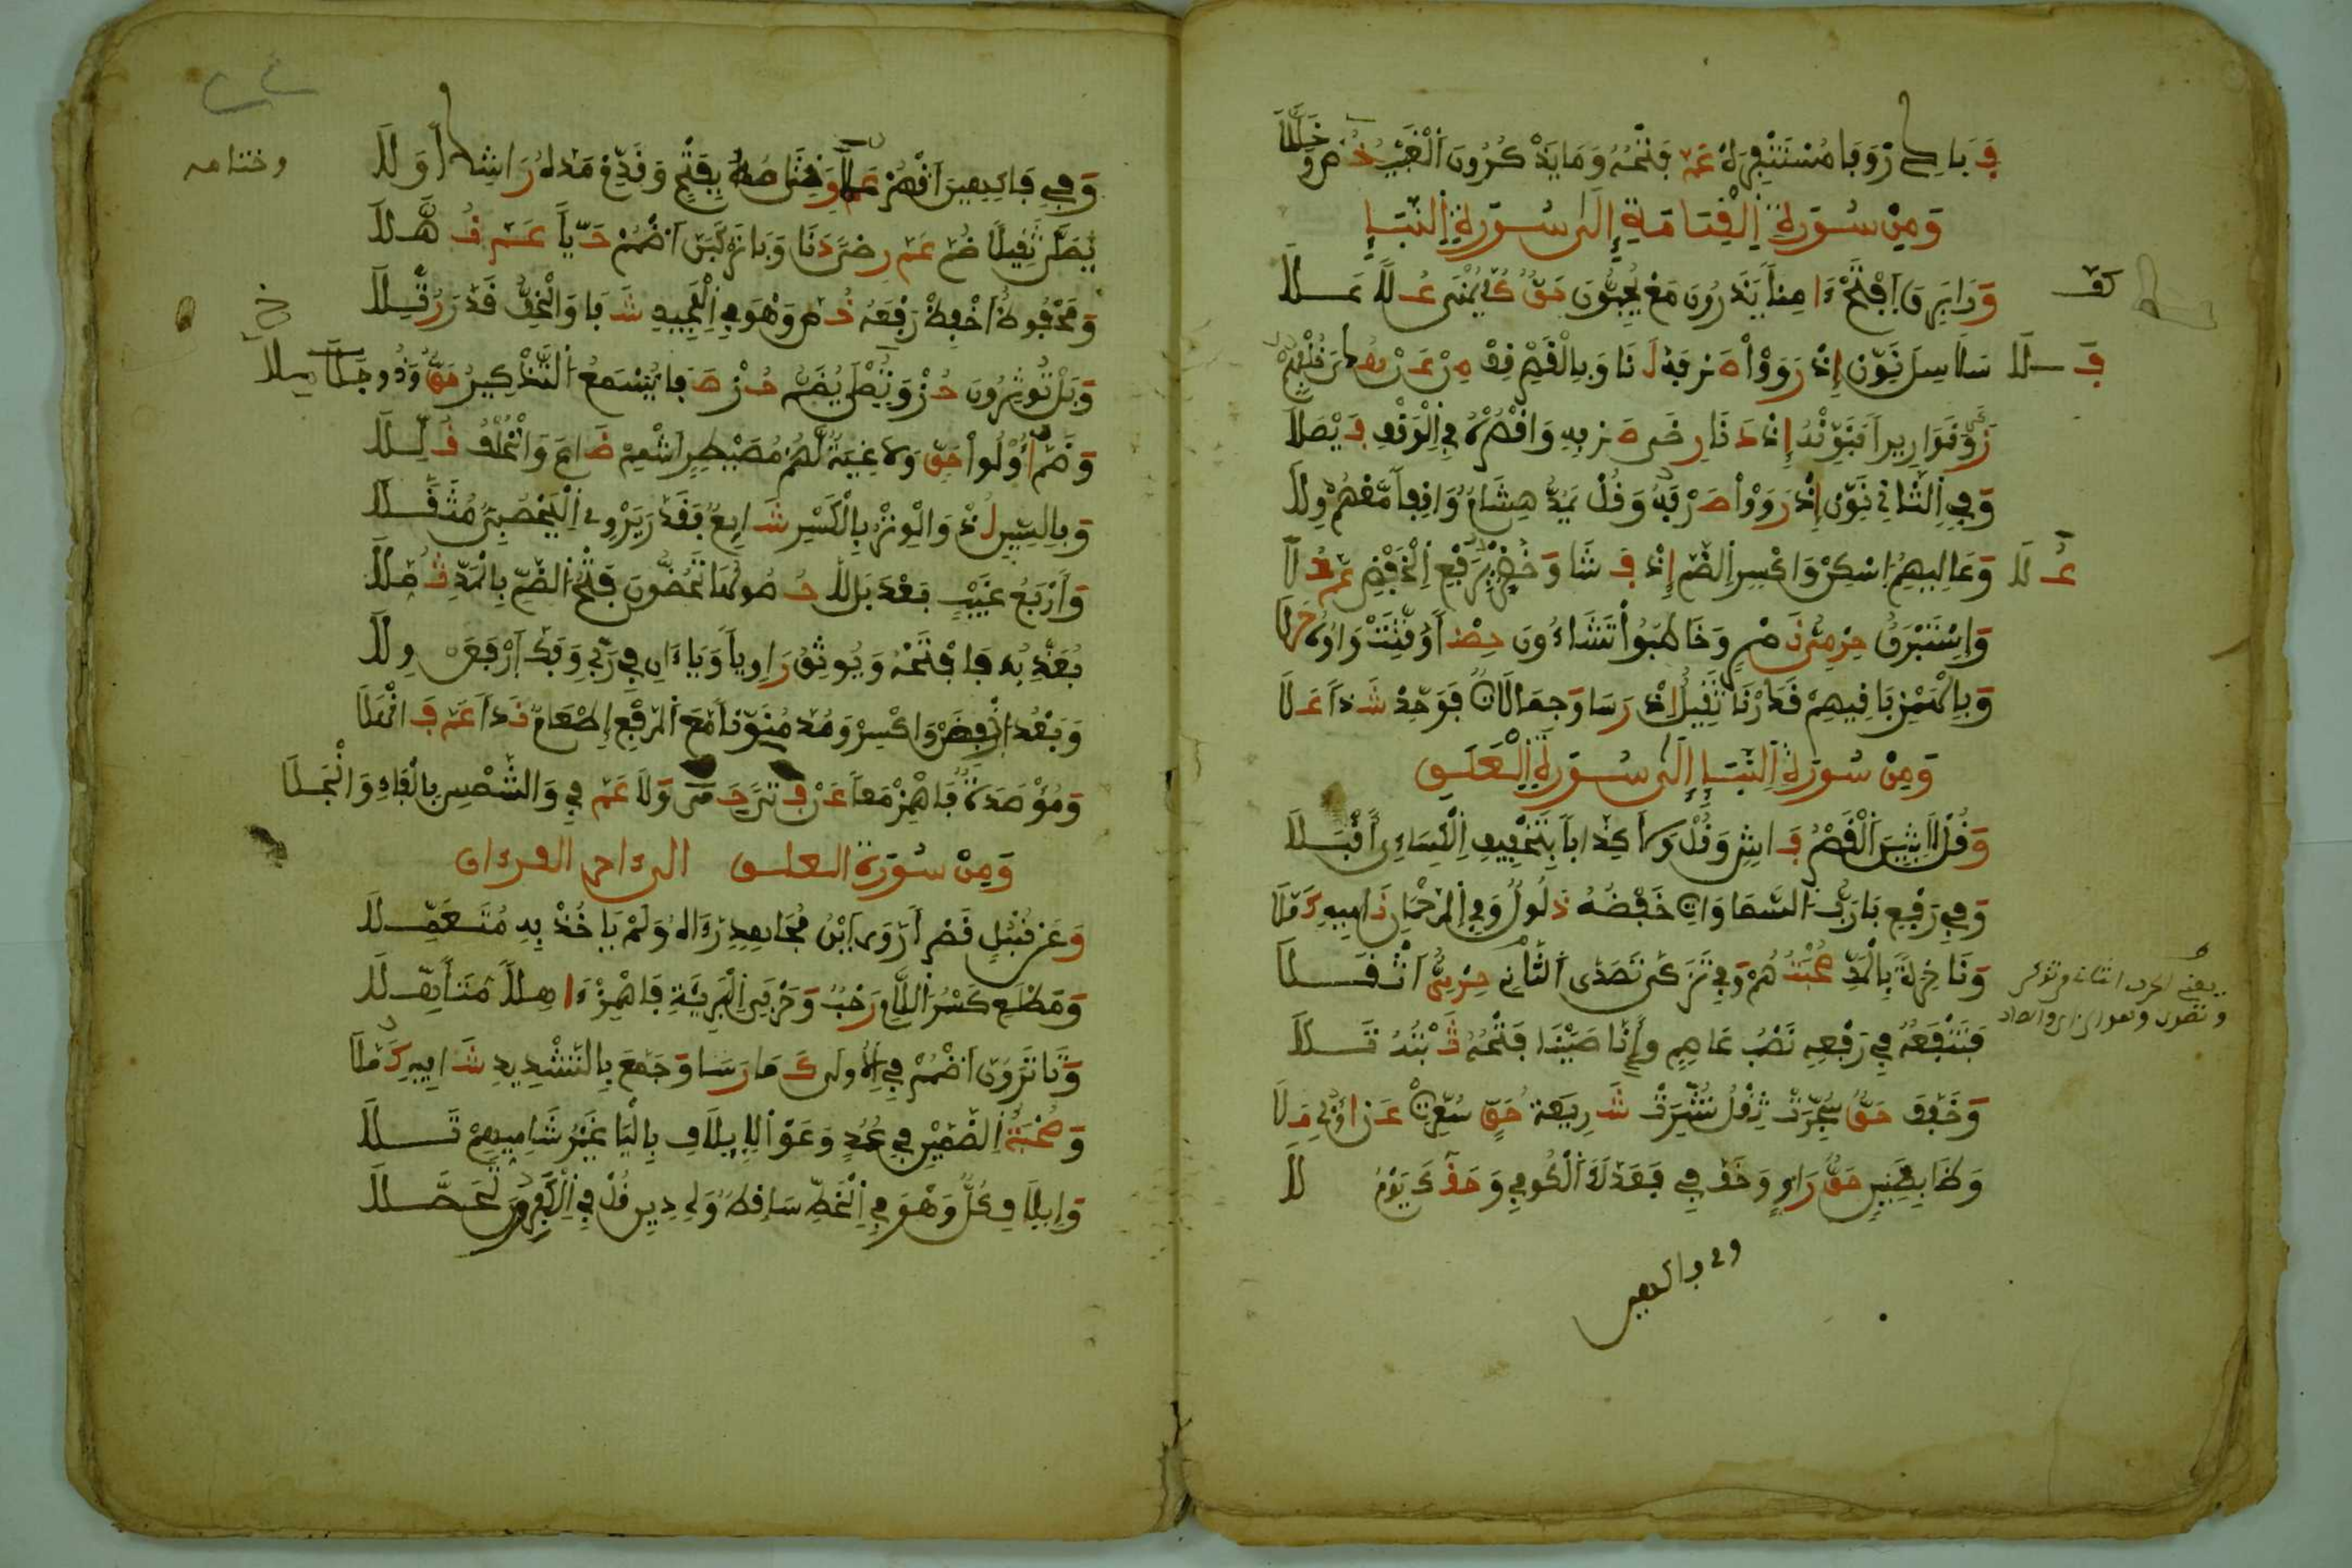 فَبَادِرْ وَفَا مُسْتَنْفِرَهْ عَمَّ فَتْحُهُ وَمَا يَذْكُرُونَ الْغَيْبُ خُصَّ وَخُلِّلَا
وَمِنْ سُورَةِ الْقِيَامَةِ إِلَى سُورَةِ النَّبَإِ
وَرَا بَرِقَ افْتَحْ ءَامِناً يَذَرُونَ مَعْ يُحِبُّونَ حَقٌّ كَفَّ يُمْنَى عُلاً عَلَا
سَلَاسِلَ نَوِّنْ إِذْ رَوَوْا صَرْفَهُ لَنَا وَبِالْقَصْرِ قِفْ مِنْ عَنْ هُدىً خُلْفُهُمْ
فَلَا
زَكَا وَقَوَارِيراً فَنَوِّنْهُ إِذْ دَنَا رِضَى صَرْفِهِ وَاقْصُرْهُ فِي الْوَقْفِ فَيْصَلَا
وَفِي الثَّانِ نَوِّنْ إِذْ رَوَوْا صَرْفَهُ وَقُلْ يَمُدُّ هِشَامٌ وَاقِفاً مَعْهُمُ وِلَا
وَعَالِيهِمُ اسْكِنْ وَاكْسِرِ الضَّمَّ إِذْ فَشَا وَخُضْرٌ بِرَفْعِ الْخَفْضِ عَمَّ حُلَا
عُلَا
وَإِسْتَبْرَقٌ حِرْمِيُّ نَصْرٍ وَخَاطَبُوا تَشَاءُونَ حِصْنٌ أُقِّتَتْ وَاوُهُ حَلَا
وَبِالْهَمْزِ بَاقِيهِمْ قَدَرْنَا ثَقِيلٌ اذْ رَسَا وَجِمَالَاتٌ فَوَحِّدْ شَذاً عَلَا
وَمِنْ سُورَةِ النَّبَإِ إِلَى سُورَةِ الْعَلَقِ
وَقُلْ لَابِثِينَ الْقَصْرُ فَاشٍ وَقُلْ وَلَا كِذَاباً بِتَخْفِيفِ الْكِسَائِيِّ أَقْبَلَا
وَفِي رَفْعِ بَا رَبُّ السَّمَاوَاتِ خَفْضُهُ ذَلُولٌ وَفِي الرَّحْمَنِ نَامِيهِ كَمَّلَا
وَنَاخِرَةً بِالْمَدِّ صُحْبَتُهُمْ وَفِي تَزَكَّى تَصَدَّى الثَّانِ حِرْمِيُّ اثْقَلَا
فَتَنْفَعُهُ فِي رَفْعِهِ نَصْبُ عَاصِمٍ وَإِنَّا صَبَبْنَا فَتْحُهُ ثَبْتُهُ تَلَا
وَخَفَّفَ حَقٌّ سُجِّرَتْ ثِقْلُ نُشِّرَتْ شَرِيعَةُ حَقٍّ سُعِّرَتْ عَنْ أُولِي مَلَا
وَظَا بِضَنِينٍ حَقُّ رَاوٍ وَخَفَّ فِي فَعَدَلَكَ الْكُوفِي وَحَقُّكَ يَوْمُ لَا
وفي فاكهين
وَفِي فَاكِهِينَ اقْصُرْ عُلاً وَخِتَامُهُ بِفَتْحٍ وَقَدِّمْ مَدَّهُ رَاشِداً وَلَا
وختامه
يُصَلَّى ثَقِيلاً ضُمَّ عَمَّ رِضىً دَنَا وَبَا تَرْكَبَنَّ اضْمُمْ حَياً عَمَّ نُهَّلَا
وَمَحْفُوظٌ اخْفِضْ رَفْعَهُ خُصَّ وَهْوَ فِي الْمَجِيدِ شَفَا وَالْخِفُّ قَدَّرَ رُتِّلَا
وَبَلْ تُؤْثِرُونَ حُزْ وَتُصْلَى يُضَمُّ حُزْ صَفَا يُسْمَعُ التَّذْكِيرُ حَقٌّ وَذُو جِلَا
وَضَمَّ أُولُوا حَقٍّ وَلَاغِيَةٌ لَهُمْ مُصَيْطِرٍ اشْمِمْ ضَاعَ وَالْخُلْفُ قُلِّلَا
وَبِالسِّينِ لُذْ وَالْوِتْرِ بِالْكَسْرِ شَائِعٌ فَقَدَّرَ يَرْوِي الْيَحْصُبِيُّ مُثَقَّلَا
وَأَرْبَعُ غَيْبٍ بَعْدَ بَلْ لَا حُصُولُهَا تَحُضُّونَ فَتْحُ الضَّمِّ بِالْمَدِّ ثُمِّلَا
يُعَذِّبُ فَافْتَحْهُ وَيُوثِقُ رَاوِياً وَيَاءَانِ فِي رَبِّي وَفَكُّ ارْفَعَنْ وِلَا
وَبَعْدُ اخْفِضَنْ وَاكْسِرْ وَمُدَّ مُنَوِّناً مَعَ الرَّفْعِ إِطْعَامٌ نَداً عَمَّ فَانْهَلَا
وَمُؤْصَدَةٌ فَاهْمِزْ مَعاً عَنْ فَتىً حِمىً وَلَا عَمَّ فِي وَالشَّمْسِ بِالْفَاءِ وَانْجَلَا
وَمِنْ سُورَةِ العلق الى ءاخر القرءان
وَعَنْ قُنْبُلٍ قَصْراً رَوَى ابْنُ مُجَاهِدٍ رَءَاهُ وَلَمْ يَاخُذْ بِهِ مُتَعَمِّلَا
وَمَطْلَعِ كَسْرُ اللَّامِ رَحْبٌ وَحَرْفَيِ الْبَرِيَّةِ فَاهْمِزْ ءَاهِلاً مُتَأَهِّلَا
وَتَا تَرَوُنَّ اضْمُمْ فِي الْأُولَى كَمَا رَسَا وَجَمَّعَ بِالتَّشْدِيدِ شَافِيهِ كَمَّلَا
وَصُحْبَةٌ الضَّمَّيْنِ فِي عُمُدٍ وَعَوْا لِإِيلَافِ بِالْيَا غَيْرُ شَامِيِّهِمْ تَلَا
وَإِيلَافِ كُلٌّ وَهْوَ فِي الْخَطِّ سَاقِطٌ وَلِي دِينِ قُلْ فِي الْكَافِرِينَ تَحَصَّلَا